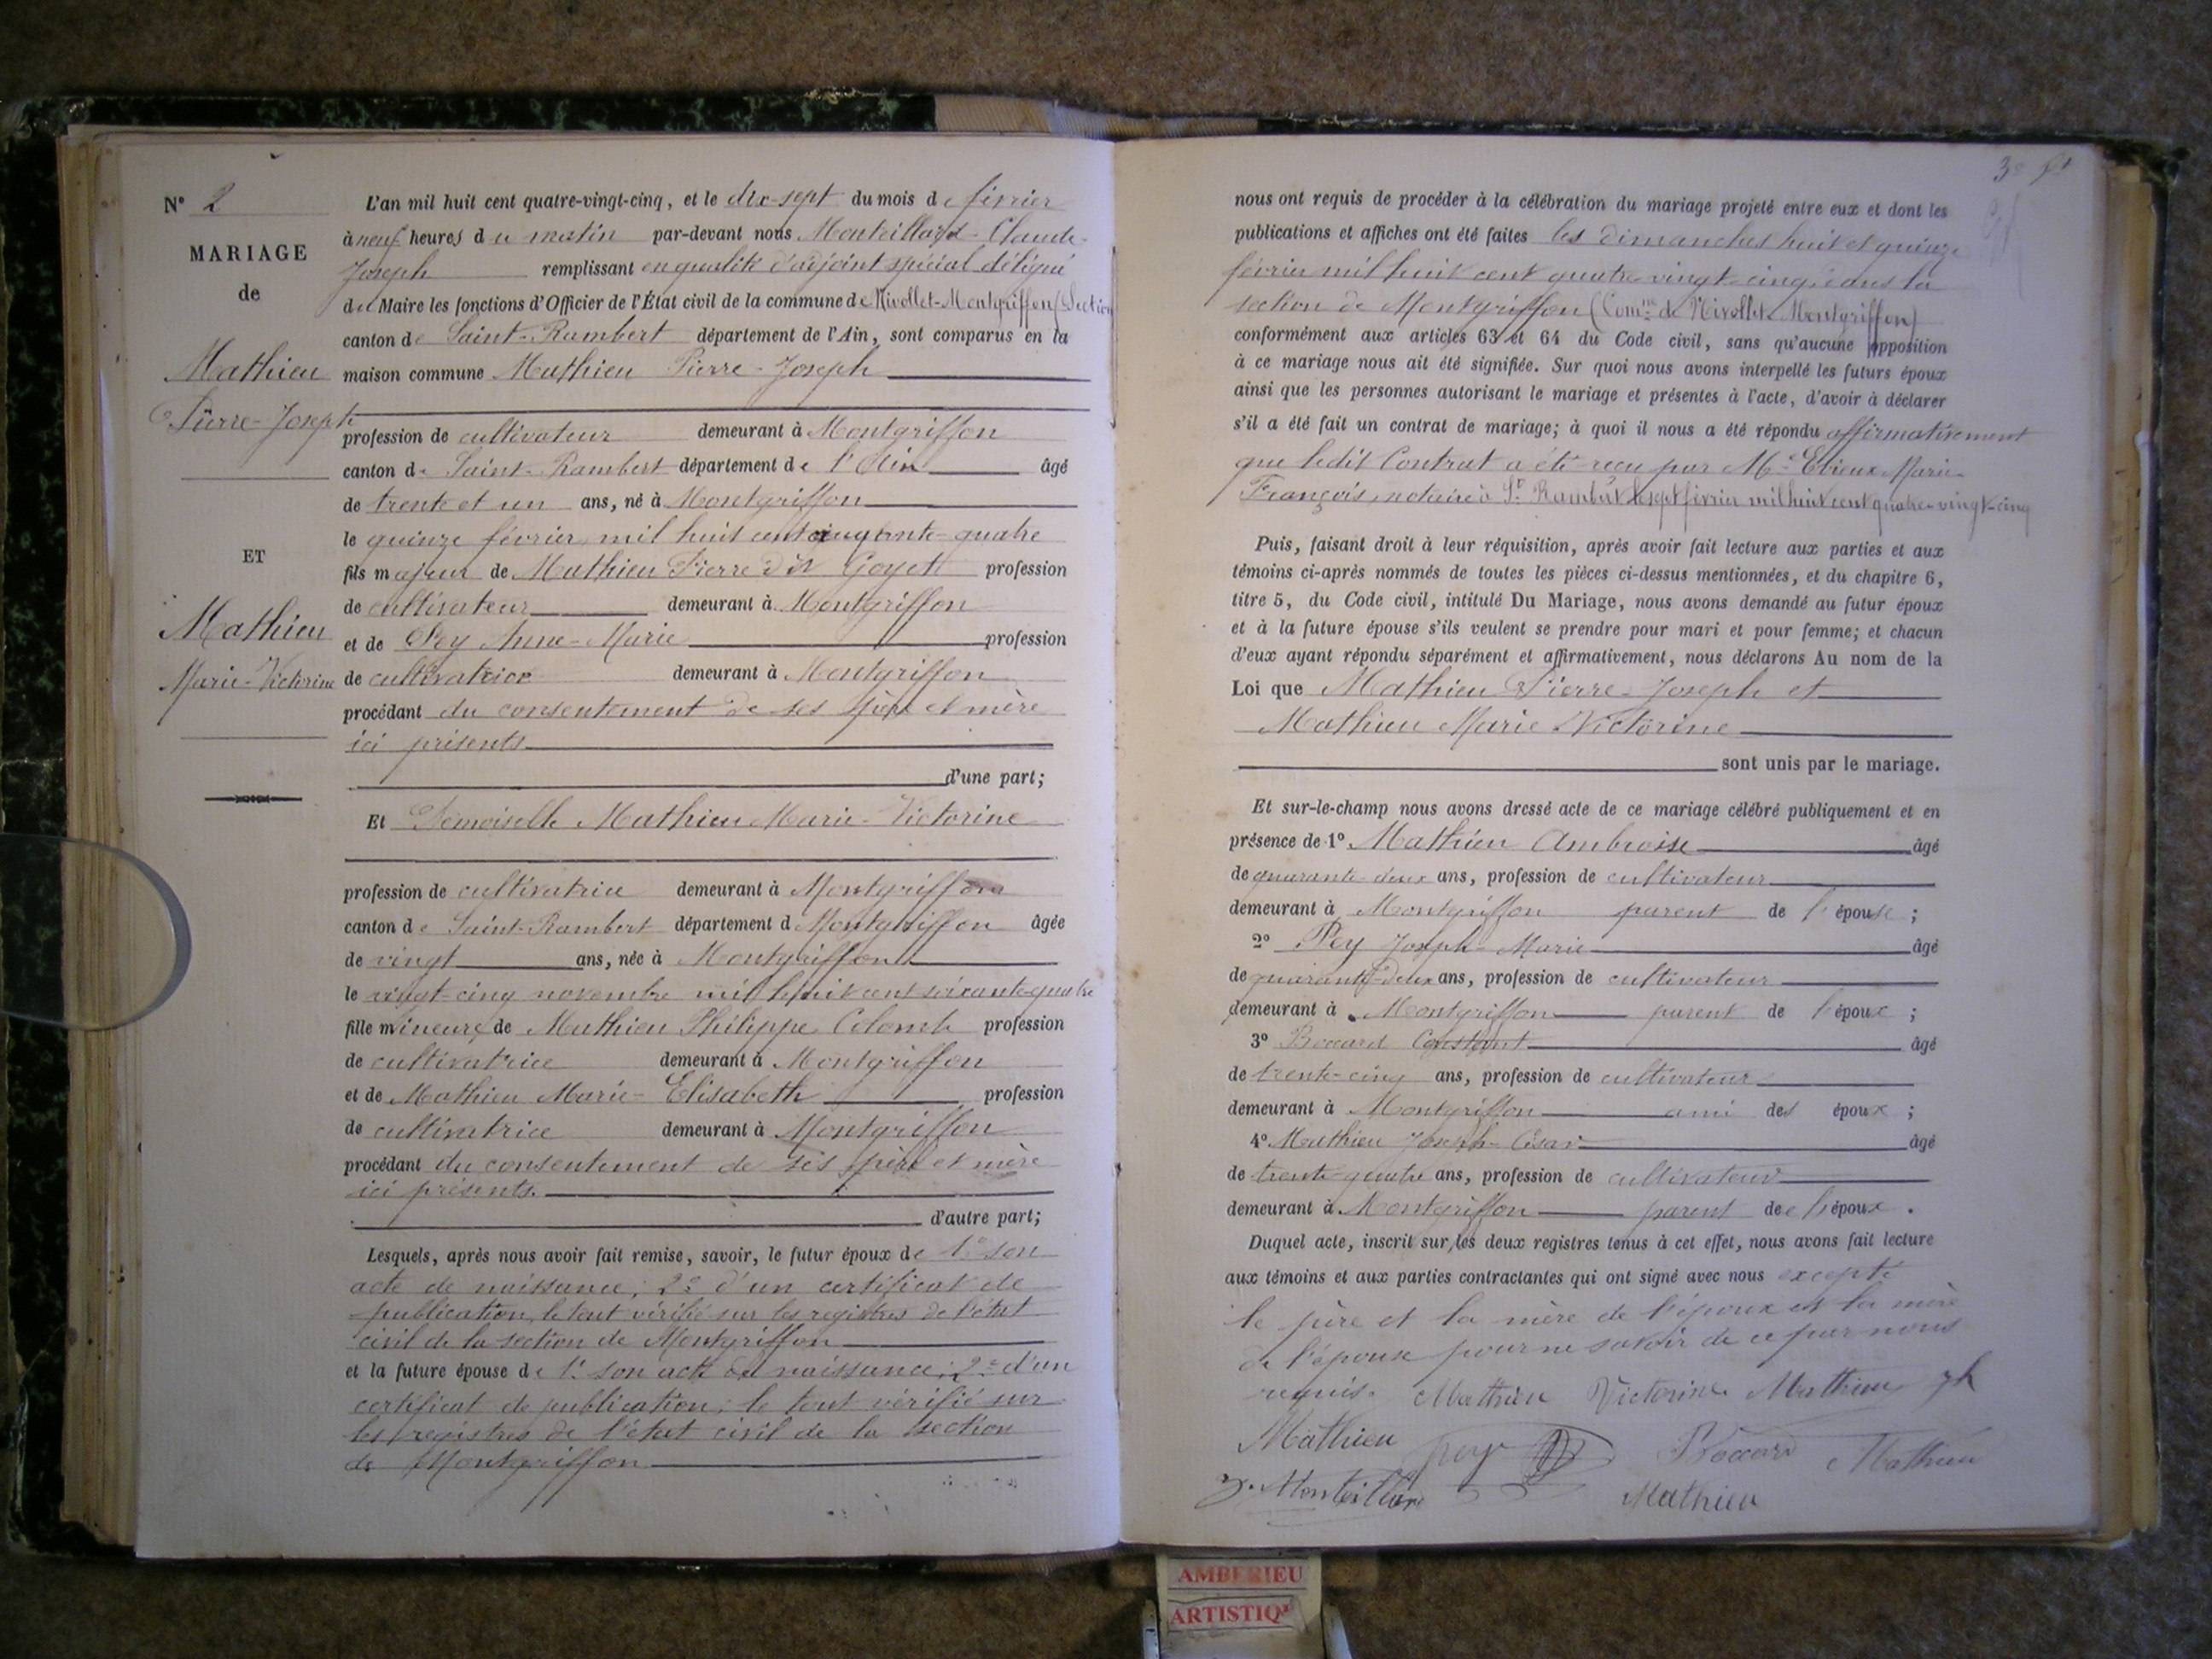 N° 2
MARIAGE
de
Mathieu
Pierre-Joseph
ET
Mathieu
Marie-Victorine
L'an mil huit cent quatre-vingt-cinq, et le dix-sept du mois de février
à neuf heures du matin par-devant nous Monteillard-Claude-
Joseph remplissant en qualité d'adjoint spécial délégué
du Maire les fonctions d'Officier de l'État civil de la commune de Nivollet-Montgriffon (Section
canton de Saint-Rambert département de l'Ain, sont comparus en la
maison commune Mathieu Pierre-Joseph
profession de cultivateur demeurant à Montgriffon
canton de Saint-Rambert département de l'Ain âgé
de trente et un ans, né à Montgriffon
le quinze février mil huit cent cinquante-quatre
fils majeur de Mathieu Pierre dit Goyet profession
de cultivateur demeurant à Montgriffon
et de Pey Anne-Marie profession
de cultivatrice demeurant à Montgriffon
procédant du consentement de ses père et mère
ici présents
d'une part;
Et Demoiselle Mathieu Marie-Victorine
profession de cultivatrice demeurant à Montgriffon
canton de Saint-Rambert département d Montgriffon âgée
de vingt ans, née à Montgriffon
le vingt-cinq novembre mil huit cent soixante-quatre
fille mineure de Mathieu Philippe Colomb profession
de cultivatrice demeurant à Montgriffon
et de Mathieu Marie-Elisabeth profession
de cultivatrice demeurant à Montgriffon
procédant du consentement de ses père et mère
ici présents.
d'autre part;
Lesquels, après nous avoir fait remise, savoir, le futur époux de 1° son
acte de naissance; 2° d'un certificat de
publication, le tout vérifié sur les registres de l'état
civil de la section de Montgriffon
et la future épouse de 1° son acte de naissance; 2° d'un
certificat de publication; le tout vérifié sur
les registres de l'état civil de la section
de Montgriffon
nous ont requis de procéder à la célébration du mariage projeté entre eux et dont les
publications et affiches ont été faites les dimanches huit et quinze
février mil huit cent quatre-vingt-cinq dans la
section de Montgriffon (Comne de Nivollet-Montgriffon)
conformément aux articles 63 et 64 du Code civil, sans qu'aucune opposition
à ce mariage nous ait été signifiée. Sur quoi nous avons interpellé les futurs époux
ainsi que les personnes autorisant le mariage et présentes à l'acte, d'avoir à déclarer
s'il a été fait un contrat de mariage; à quoi il nous a été répondu affirmativement
que ledit Contrat a été reçu par Me Marie-
François, notaire à St Rambert le sept février mil huit cent quatre-vingt-cinq
Puis, faisant droit à leur réquisition, après avoir fait lecture aux parties et aux
témoins ci-après nommés de toutes les pièces ci-dessus mentionnées, et du chapitre 6,
titre 5, du Code civil, intitulé Du Mariage, nous avons demandé au futur époux
et à la future épouse s'ils veulent se prendre pour mari et pour femme; et chacun
d'eux ayant répondu séparément et affirmativement, nous déclarons Au nom de la
Loi que Mathieu Pierre-Joseph et
Mathieu Marie Victorine
sont unis par le mariage.
Et sur-le-champ nous avons dressé acte de ce mariage célébré publiquement et en
présence de 1° Mathieu Ambroise âgé
de quarante-deux ans, profession de cultivateur
demeurant à Montgriffon parent de l'épouse;
2° Pey Joseph-Marie âgé
de quarante-deux ans, profession de cultivateur
demeurant à Montgriffon parent de l'époux;
3° Boccard Constant âgé
de trente-cinq ans, profession de cultivateur
demeurant à Montgriffon ami des époux;
4° Mathieu Joseph-César âgé
de trente-quatre ans, profession de cultivateur
demeurant à Montgriffon parent de l'époux.
Duquel acte, inscrit sur les deux registres tenus à cet effet, nous avons fait lecture
aux témoins et aux parties contractantes qui ont signé avec nous excepté
le père et la mère de l'époux et la mère
de l'épouse pour ne savoir de ce par nous
requis. Mathieu Victorine Mathieu
Mathieu Pey Boccard Mathieu
Monteillard Mathieu
AMBERIEU
ARTISTIQ